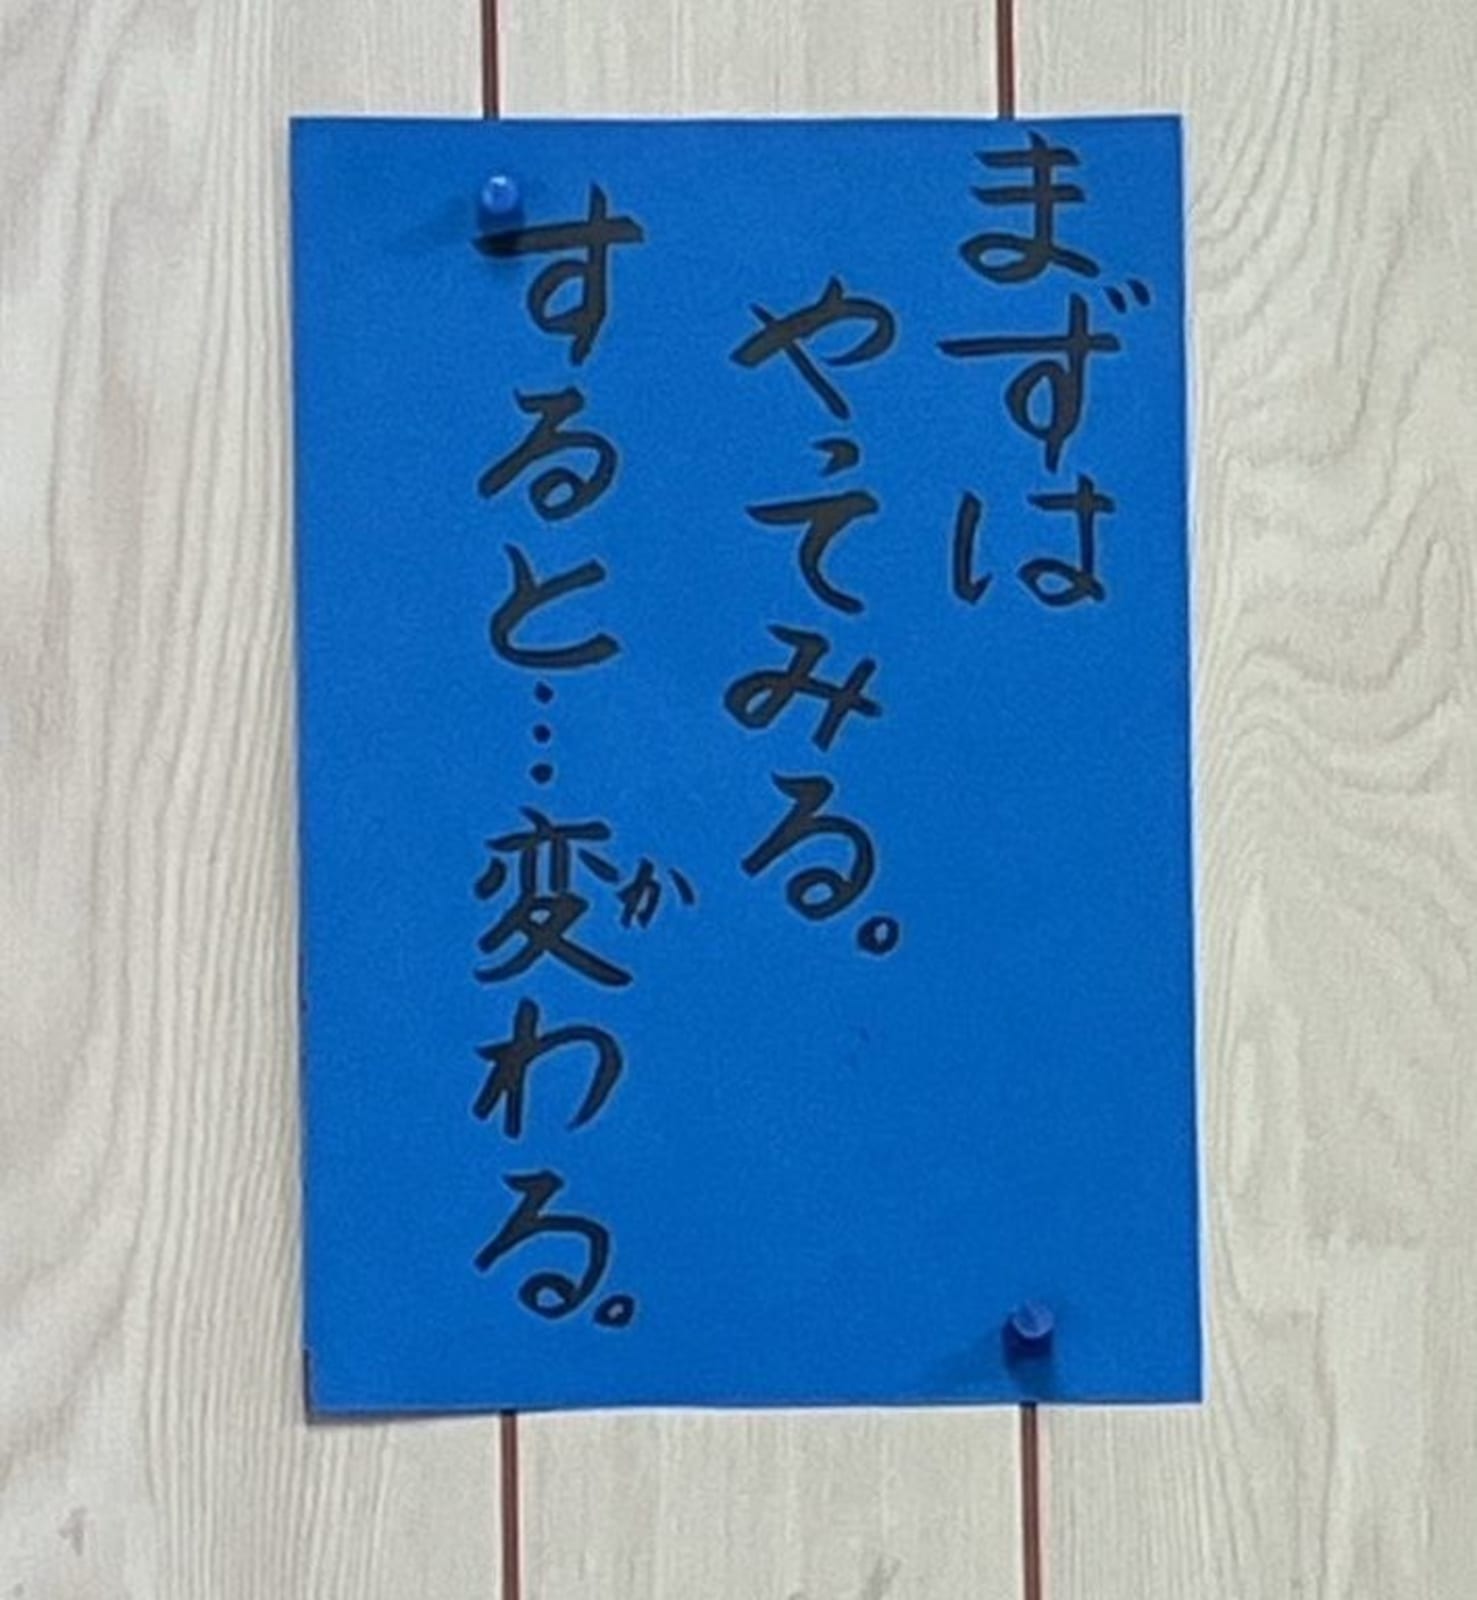 まずは
やってみる。
すると…変わる。
か